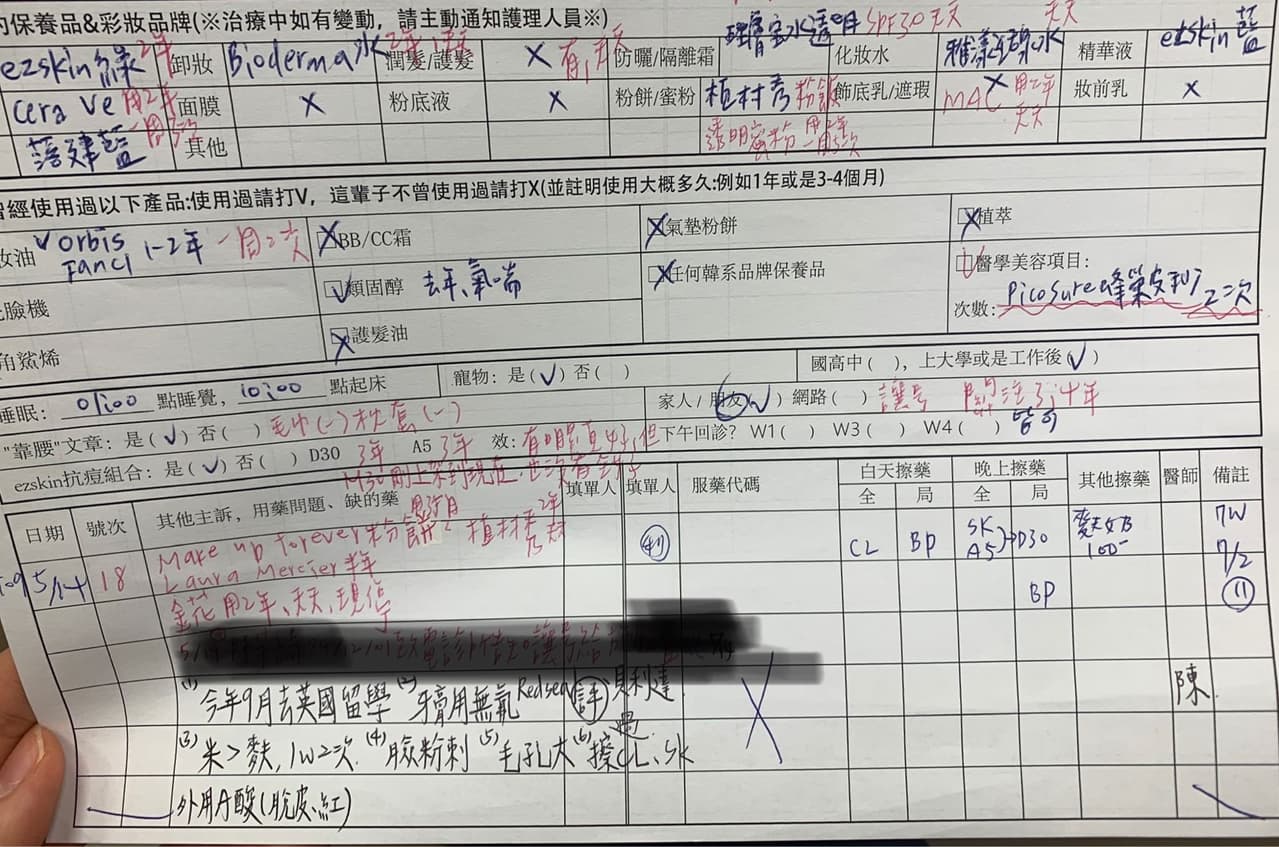 的保養品&彩妝品牌(※治療中如有變動，請主動通知護理人員※)
ezskin綠 2年 卸妝 Bioderma水 2年 潤髮/護髮 X 有,天天 防曬/隔離霜 理膚宝水透明 SPF30天天 化妝水 雅漾 水 天天 精華液 ezskin藍
Cera Ve 用2年 面膜 X 粉底液 X 粉餅/蜜粉 植村秀粉餅 飾底乳/遮瑕 X MAC 用2年 天天 妝前乳 X
落建藍 一周 次 其他 透明蜜粉 用2年 一周5次
曾經使用過以下產品:使用過請打V，這輩子不曾使用過請打X(並註明使用大概多久:例如1年或是3-4個月)
妝油 V orbis Fancl 1-2年 一周2次 X BB/CC霜 X 氣墊粉餅 X 植萃
洗臉機 V 類固醇 去年、氣喘 X 任何韓系品牌保養品 V 醫學美容項目:
次數: Picosure蜂巢皮秒 2次
角鯊烯 X 護髮油
睡眠: 01:00 點睡覺, 10:00 點起床 寵物: 是(V) 否( ) 國高中( ), 上大學或是工作後(V)
"靠腰"文章: 是(V) 否( ) 毛巾(-) 枕套(-) 家人/朋友(V) 網路( ) 讓号 関注3、4年
ezskin抗痘組合: 是(V) 否( ) D30 3年 A5 3年 效: 有明顯更好,但 下午回診? W1( ) W3( ) W4( ) 皆可
M30剛上架到現在
日期 號次 其他主訴，用藥問題、缺的藥 填單人 填單人 服藥代碼 白天擦藥 全 局 晚上擦藥 全 局 其他擦藥 醫師 備註
5/14 18 Make up forever粉餅 植村秀 2年 天天 CL BP SK A5 →D30 100- 7W
Laura Mercier半年 7/2
金花 用2年、天天、現停 BP 11
(1) 今年9月去英國留學 (2) 牙膏用無氟Redseal 貝利達 陳
(3) 米>麥, 1W2次 (4) 臉粉刺 (5) 毛孔大 (6) 擦過CL、SK
外用A酸(脫皮、紅)